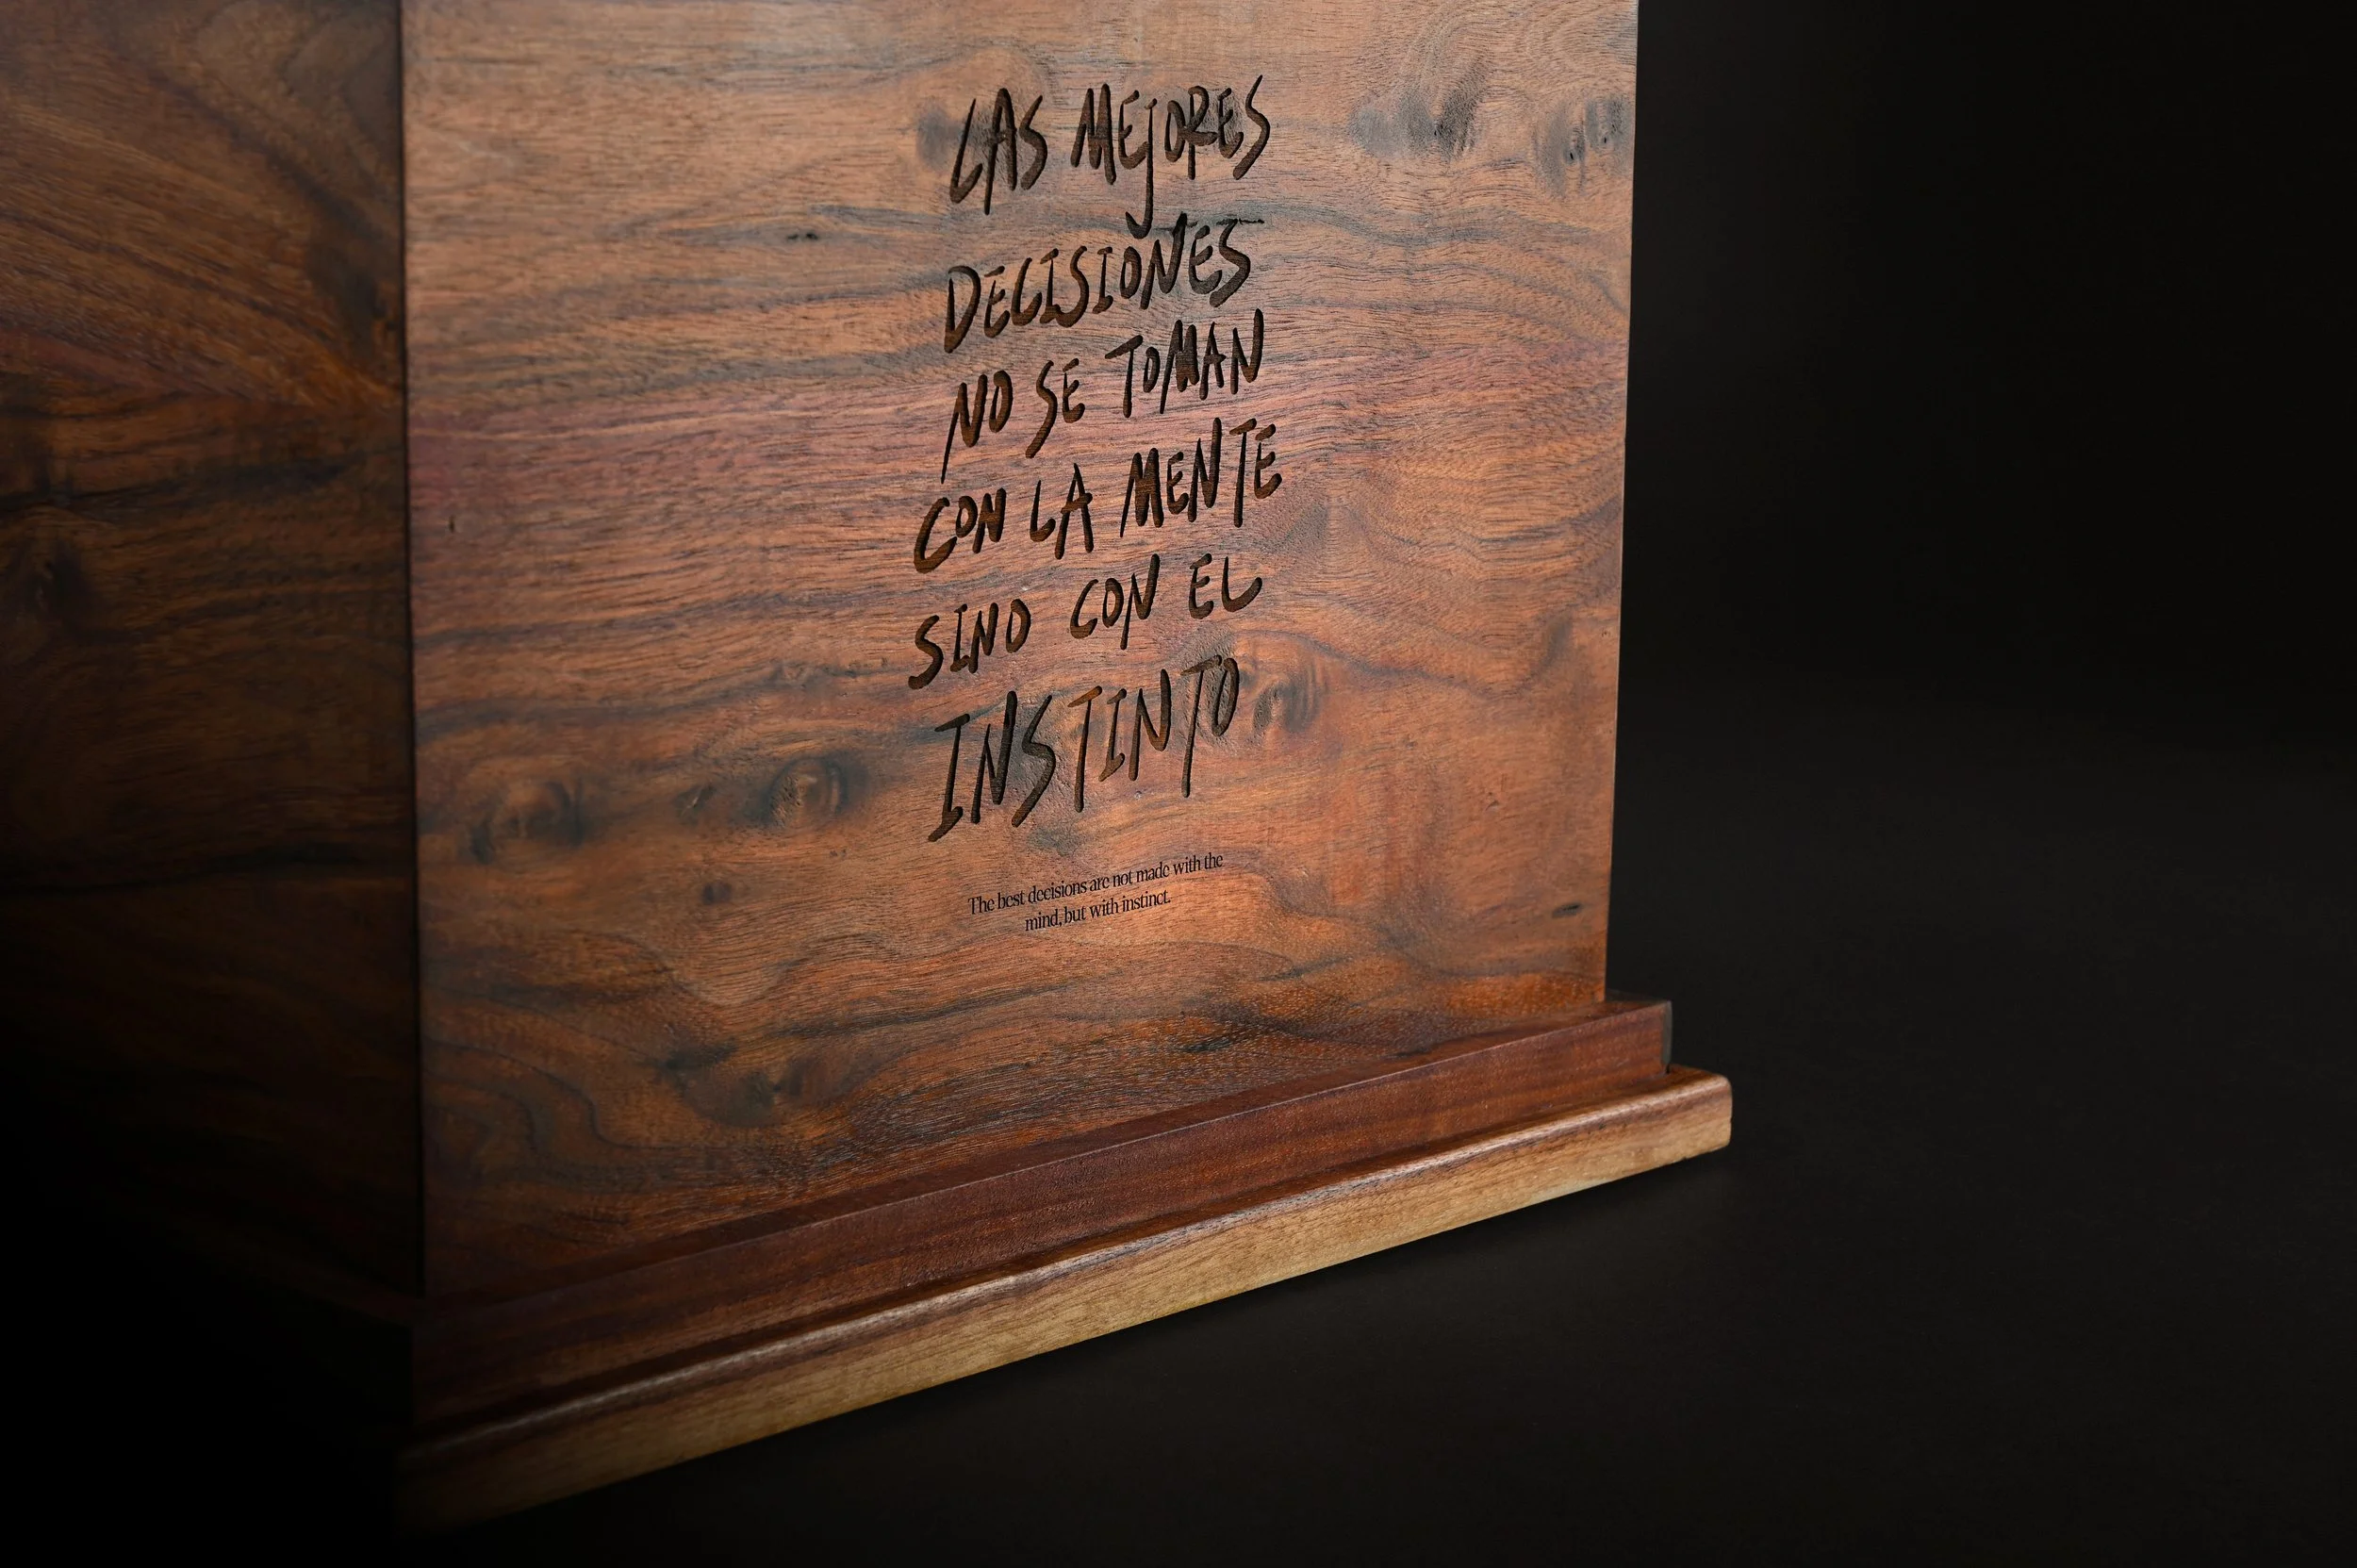 LAS MEJORES
DECISIONES
NO SE TOMAN
CON LA MENTE
SINO CON EL
INSTINTO
The best decisions are not made with the
mind, but with instinct.